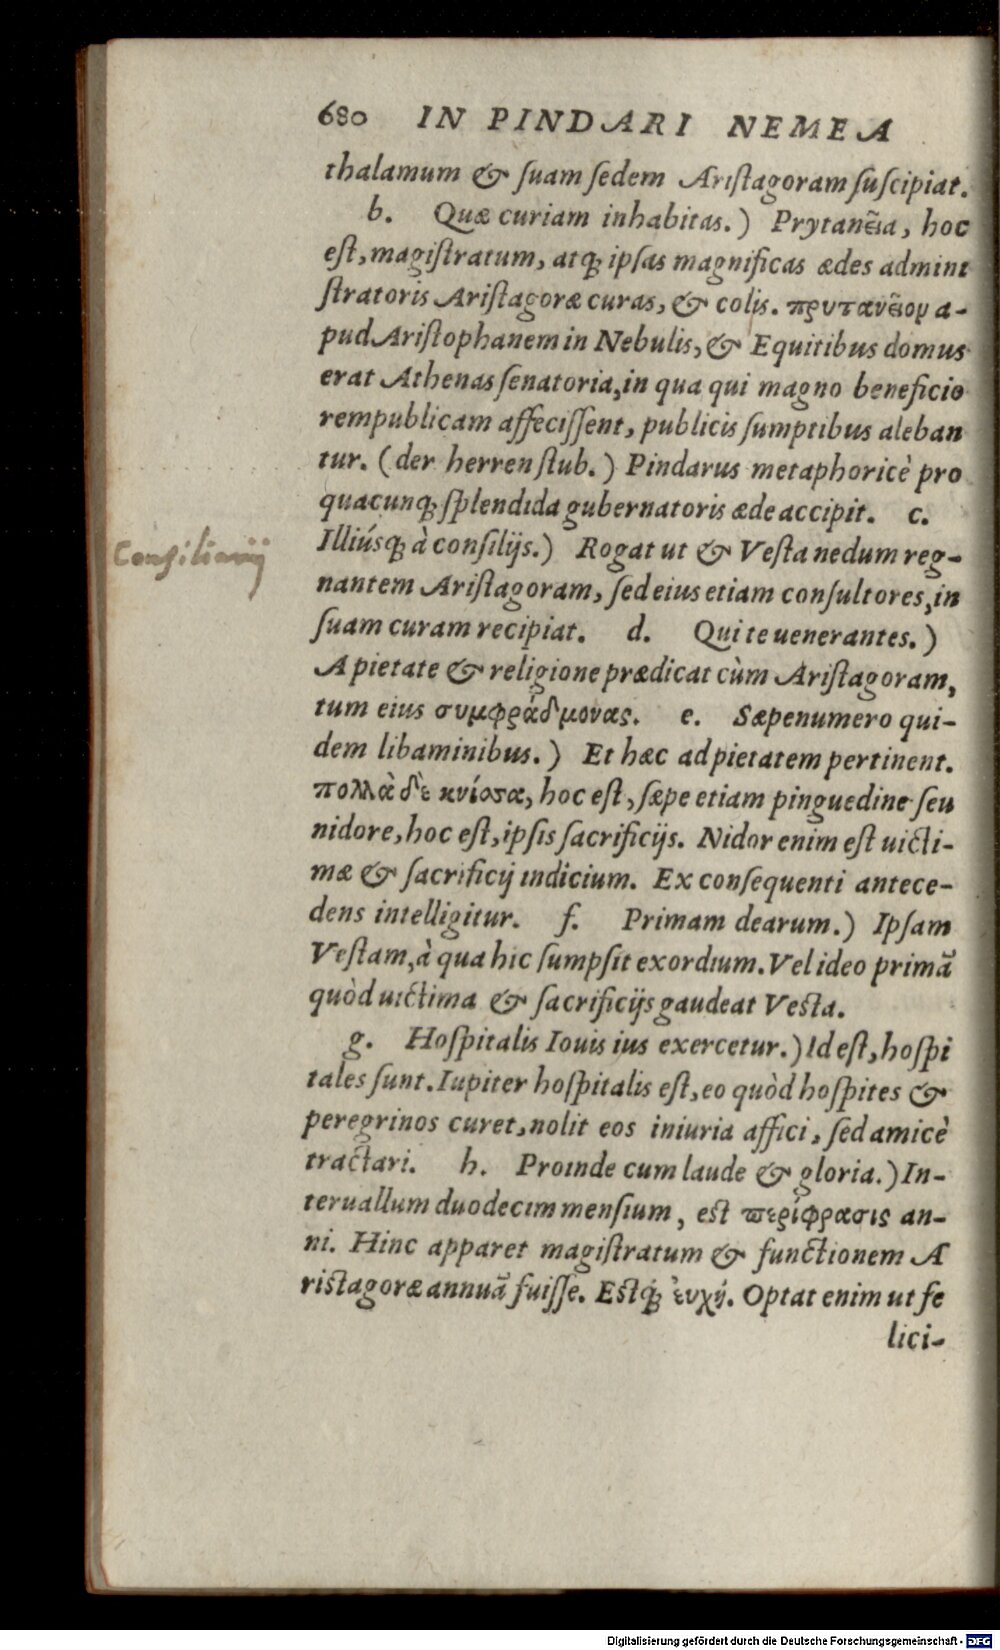 680 IN PINDARI NEMEA
thalamum & ſuam ſedem Ariſtagoram ſuſcipiat.
b. Quæ curiam inhabitas.) Prytanẽia, hoc
eſt, magiſtratum, atq; ipſas magnificas ædes admini
ſtratoris Ariſtagoræ curas, & colis. πρυτανεῖον a-
pud Ariſtophanem in Nebulis, & Equitibus domus
erat Athenas ſenatoria, in qua qui magno beneficio
rempublicam affeciſſent, publicis ſumptibus aleban
tur. (der herren ſtub.) Pindarus metaphoricè pro
quacunq; ſplendida gubernatoris æde accipit. c.
Illiúsq; à conſilijs.) Rogat ut & Veſta nedum reg-
Consiliarij
nantem Ariſtagoram, ſed eius etiam conſultores, in
ſuam curam recipiat. d. Qui te uenerantes.)
A pietate & religione prædicat cùm Ariſtagoram,
tum eius συμφράδμονας. e. Sæpenumero qui-
dem libaminibus.) Et hæc ad pietatem pertinent.
πολλὰ δὲ κνίσσα, hoc eſt, ſæpe etiam pinguedine ſeu
nidore, hoc eſt, ipſis ſacrificijs. Nidor enim eſt uicti-
mæ & ſacrificij indicium. Ex conſequenti antece-
dens intelligitur. f. Primam dearum.) Ipſam
Veſtam, à qua hic ſumpſit exordium. Vel ideo primã
quòd uictima & ſacrificijs gaudeat Veſta.
g. Hoſpitalis Iouis ius exercetur.) Id eſt, hoſpi
tales ſunt. Iupiter hoſpitalis eſt, eo quòd hoſpites &
peregrinos curet, nolit eos iniuria affici, ſed amicè
tractari. h. Proinde cum laude & gloria.) In-
teruallum duodecim menſium, eſt περίφρασις an-
ni. Hinc apparet magiſtratum & functionem A
riſtagoræ annuã fuiſſe. Eſtq́; ἐυχή. Optat enim ut fe
lici-
Digitalisierung gefördert durch die Deutsche Forschungsgemeinschaft - DFG